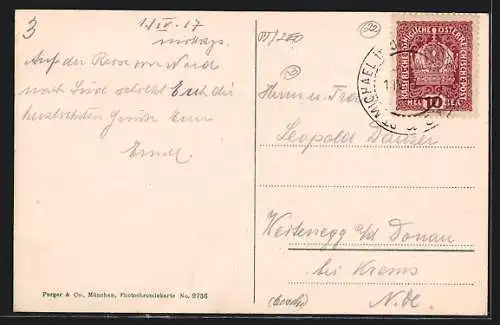 3
1/IV. 17
mittags.
Auf der Reise von Nord
nach Süd schickt Euch die
herzlichsten Grüße Euer
Ernst.
Perger & Co., München, Photochromiekarte No. 9756
KAISERLICHE KÖNIGLICHE ÖSTERREICHISCHE POST
10
HELLER
ST. MICHAEL
Herrn u. Frau
Leopold Dauser
Weitenegg a/d Donau
bei Krems
N. Oe.